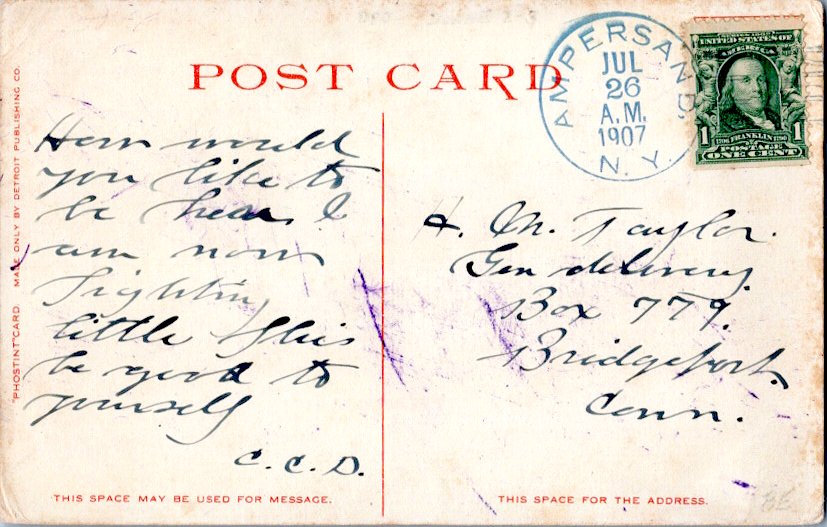 POST CARD
AMPERSAND
JUL
26
A.M.
1907
N. Y.
SERIES 1902
UNITED STATES OF
AMERICA
1 FRANKLIN 1
1706 1790
POSTAGE
ONE CENT
"PHOSTINT" CARD. MADE ONLY BY DETROIT PUBLISHING CO.
How would
you like to
be hear I
am now
fighting
little flies
be good to
yourself
C. C. D.
H. M. Taylor.
Gen delivery.
Box 779.
Bridgeport.
Conn.
THIS SPACE MAY BE USED FOR MESSAGE.
THIS SPACE FOR THE ADDRESS.